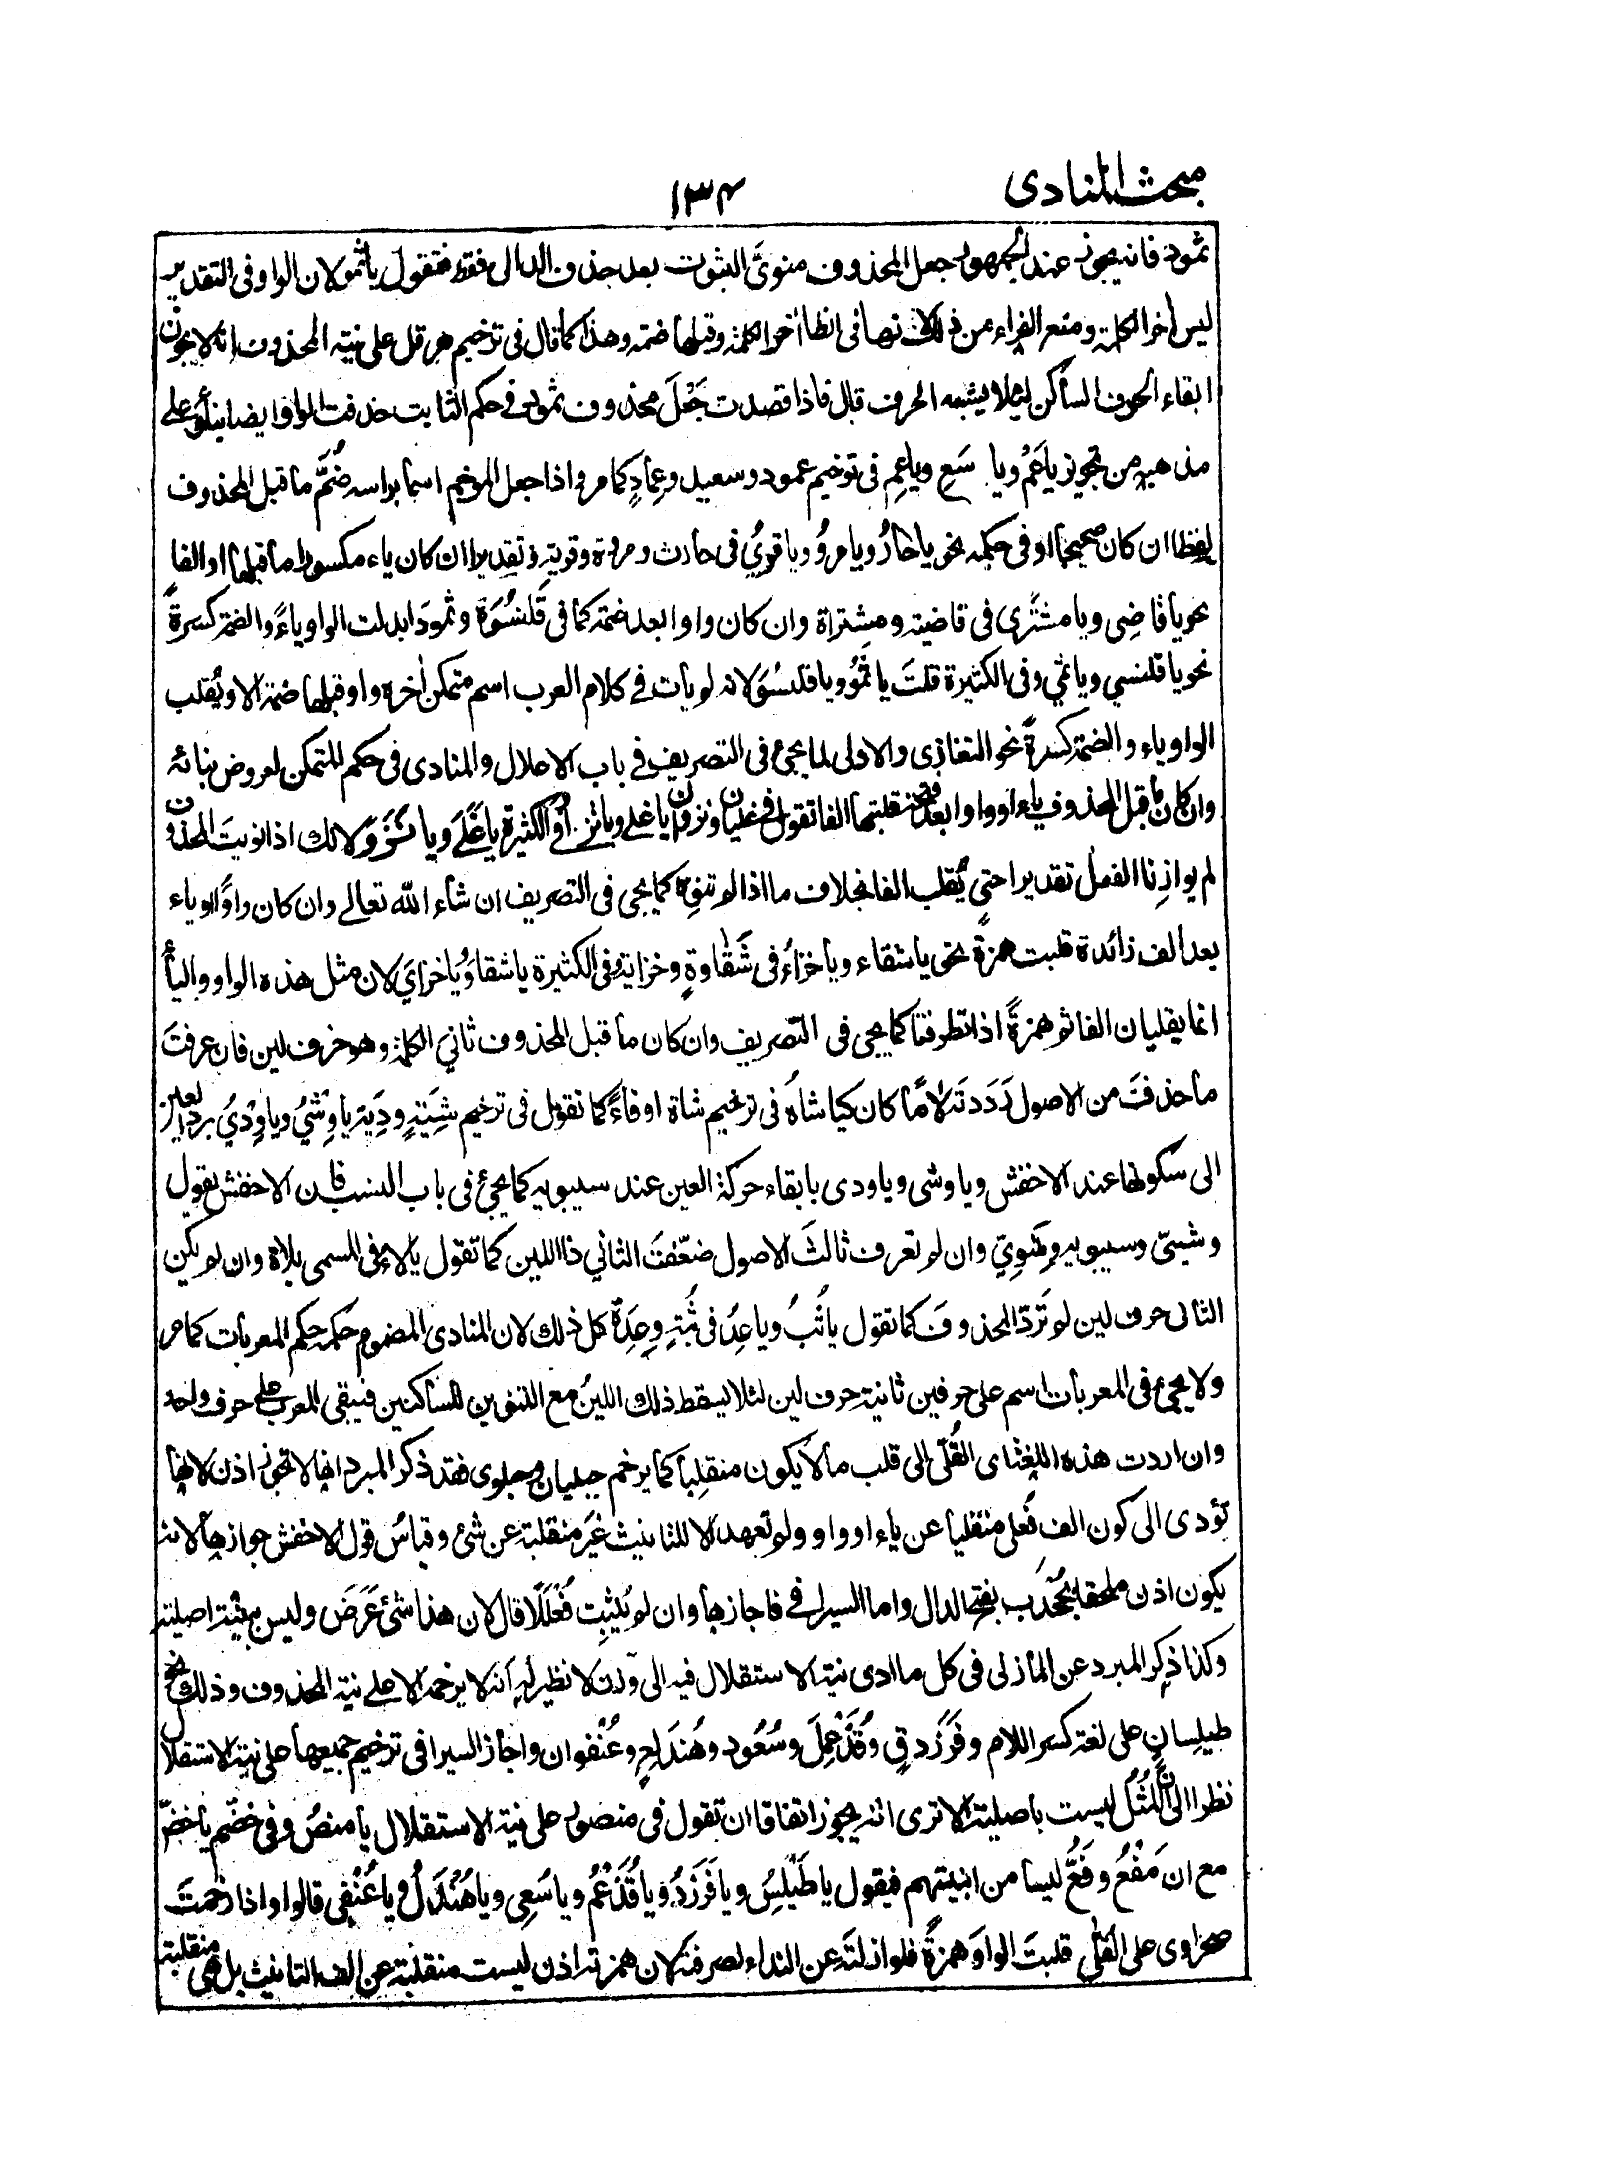 مبحث المنادى
١٣٤
ثمود فانه يجوز عند الجمهور جعل المحذوف منوىَّ الثبوت بعد حذف الدال فقط فتقول ياثمو لان الواو فى التقدير
ليس اٰخر الكلمة ومنع الفراء من ذلك لانها فى الظاهر اٰخر الكلمة وقبلها ضمة وهذا كما قال فى ترخيم هرقل على نية المحذوف انه لا يجوز
ابقاء الحرف الساكن لئلا يشبه الحرف قال فاذا قصدت جَعْلَ محذوف ثمود فى حكم الثابت حذفت الواو ايضا بناءً على
مذهبه من تجويز ياعَمُ ويا سَعِ وياعِمِ فى ترخيم عمود وسعيد وعِمادٍ كما مر واذا جعل المرخم اسما براسه ضُمَّ ما قبل المحذوف
لفظا ان كان صحيحا او فى حكمه نحو ياحارُ ويا مروُ ويا قَرىُ فى حارث ومروة وقرية وتقديرا ان كان ياء مكسورا ما قبلها او الفا
نحو ياقاضِى ويا مشترَى فى قاضية ومشتراة وان كان واوا بعد ضمة كما فى قَلَنسُوَة وثمودَ ابدلت الواو ياءً والضمة كسرةً
نحو يا قلنسي ويا ثمي وفى الكثيرة قلتَ يا ثَمُو ويا قلنسُوَ لانه لم يات فى كلام العرب اسم متمكن اٰخره واو قبلها ضمة الا ويُقلب
الواو ياء والضمة كسرةً نحو التغازى والادلى لما يجئ فى التصريف فى باب الاعلال والمنادى فى حكم المتمكن لعروض بنائه
وان كان ما قبل المحذوف ياء او واوا بعد فتحة قلبتها الفا تقول فى غليان ونزوان يا غلى ويا نزى وفى الكثيرة يا غَلَيَ ويا نَزَوَ لانك اذا نويت المحذوف
لم يوازِنا الفعل تقديرا حتى يُقلب الفا بخلاف ما اذا لم تنوه كما يجى فى التصريف ان شاء الله تعالى وان كان واوًا او ياء
بعد الف زائدة قلبت همزةً نحو ياشقاء ويا خزاءُ فى شَقاوةٍ وخزاية وفى الكثيرة ياشقاوَ يا خزايَ لان مثل هذه الواو والياء
انما يقلبان الفا ثم همزةً اذا تطرفتا كما يجى فى التصريف وان كان ما قبل المحذوف ثاني الكلمة وهو حرف لين فان عرفتَ
ما حذفتَ من الاصول رَدَدتَه لامًا كان كيا شاهُ فى ترخيم شاة او فاءً كما تقول فى ترخيم شِيَةٍ ودِيَة ياوِشْيُ وياوِدْيُ برد العين
الى سكونها عند الاخفش وياوشى وياودى بابقاء حركة العين عند سيبويه كما يجئ فى باب النسب فان الاخفش يقول
وشيىّ وسيبويه وِشَوِىّ وان لم تعرف ثالثَ الاصول ضعّفتَ الثاني ذا اللين كما تقول يالاءُ فى المسمى بلاة وان لم يكن
الثانى حرف لين لم تَرُدّ المحذوفَ كما تقول ياثُبُ وياعِدُ فى ثُبَةٍ وعِدَةٍ كل ذلك لان المنادى المضموم حكمه حكم المعربات كما مر
ولا يجئ فى المعربات اسم على حرفين ثانيه حرف لين لئلا يسقط ذلك اللينُ مع التنوين للساكنين فيبقى المعرب على حرف واحد
وان اردت هذه اللغةَ اى القُلّى الى قلب ما لا يكون منقلبا كما يرخم حبليان وحبلوى فقد ذكر المبرد انها لا تجوز اذن لانها
تؤدى الى كون الف فُعلى منقلبا عن ياء او واو ولم تعهد الا للتانيث غيرَ منقلبة عن شئ وقياسُ قول الاخفش جوازها لانه
يكون اذن ملحقا بجُخْدَب بفتح الدال واما السيرافى فاجازها وان لم يُثبِت فُعْلَلًا قال لان هذا شئ عَرَضَ وليس ببنية اصلية
وكذا ذكر المبرد عن المازنى فى كل ما ادى نية الاستقلال فيه الى وزن لا نظير له انه لا يرخم الا على نية المحذوف وذلك نحو
طيلِسانٍ على لغة كسر اللام وفَرَزدقٍ وقُذَعْمِلَ وسُعُود وهُندَلِعٍ وعُنْفوان واجاز السيرافى ترخيم جميعها على نية الاستقلال
نظرا الى ان المُثُل ليست باصلية الا ترى انه يجوز اتفاقا ان تقول فى منصور على نية الاستقلال يا منصُ وفى خضّم يا خضّ
مع ان مَفْعُ وفَعُّ ليسا من ابنيتهم فيقول يا طَيْلِسُ ويا فَرَزدُ ويا قُذَعْمُ ويا سُعِى ويا هُنْدَلُ ويا عُنْفِى قالوا واذا رخمتَ
صحراوى على القلى قلبتَ الواوَ همزةً فلو ازلتَه عن النداء لصرفته لان همزته اذن ليست منقلبة عن الف التانيث بل هى منقلبة